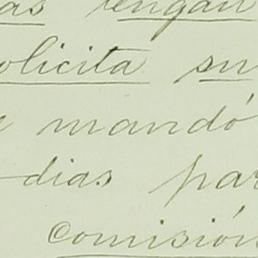 as tengan
olicita su
e mandó
dias par
comisión